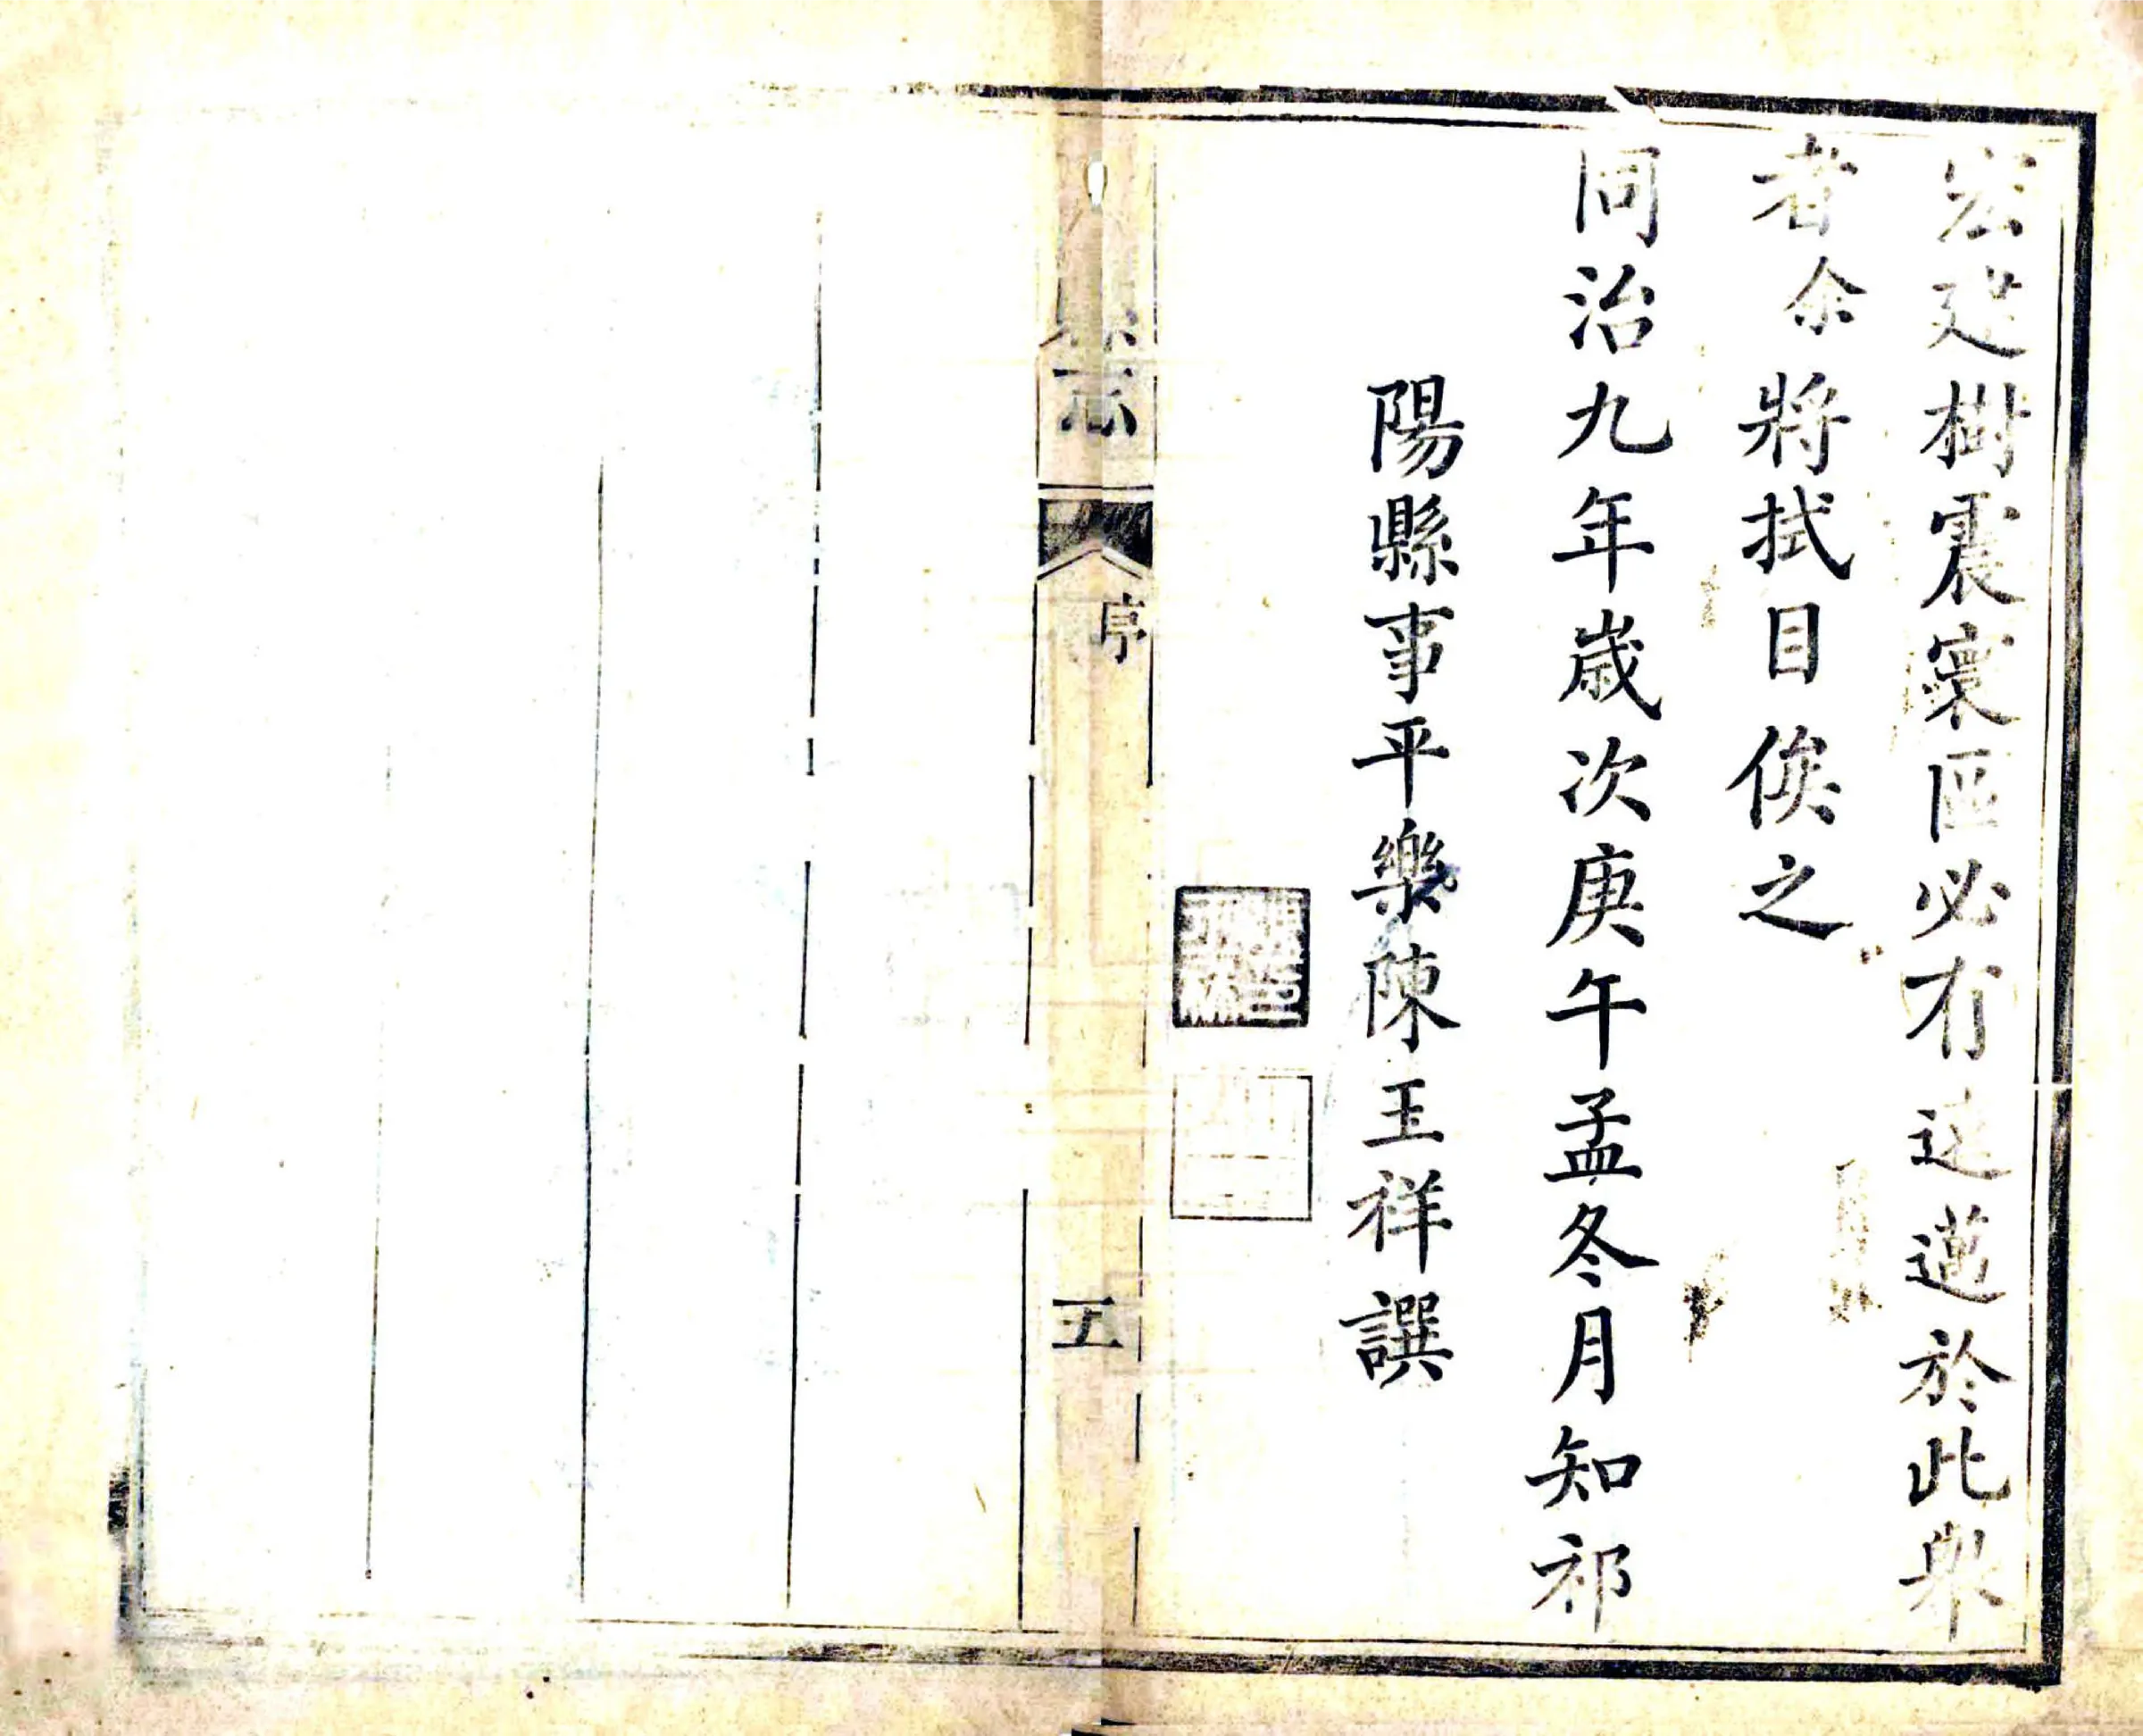 宏建樹震寰區必有遠邁於此舉
者余將拭目俟之
同治九年歲次庚午孟冬月知祁
陽縣事平樂陳玉祥譔
縣志
序
五